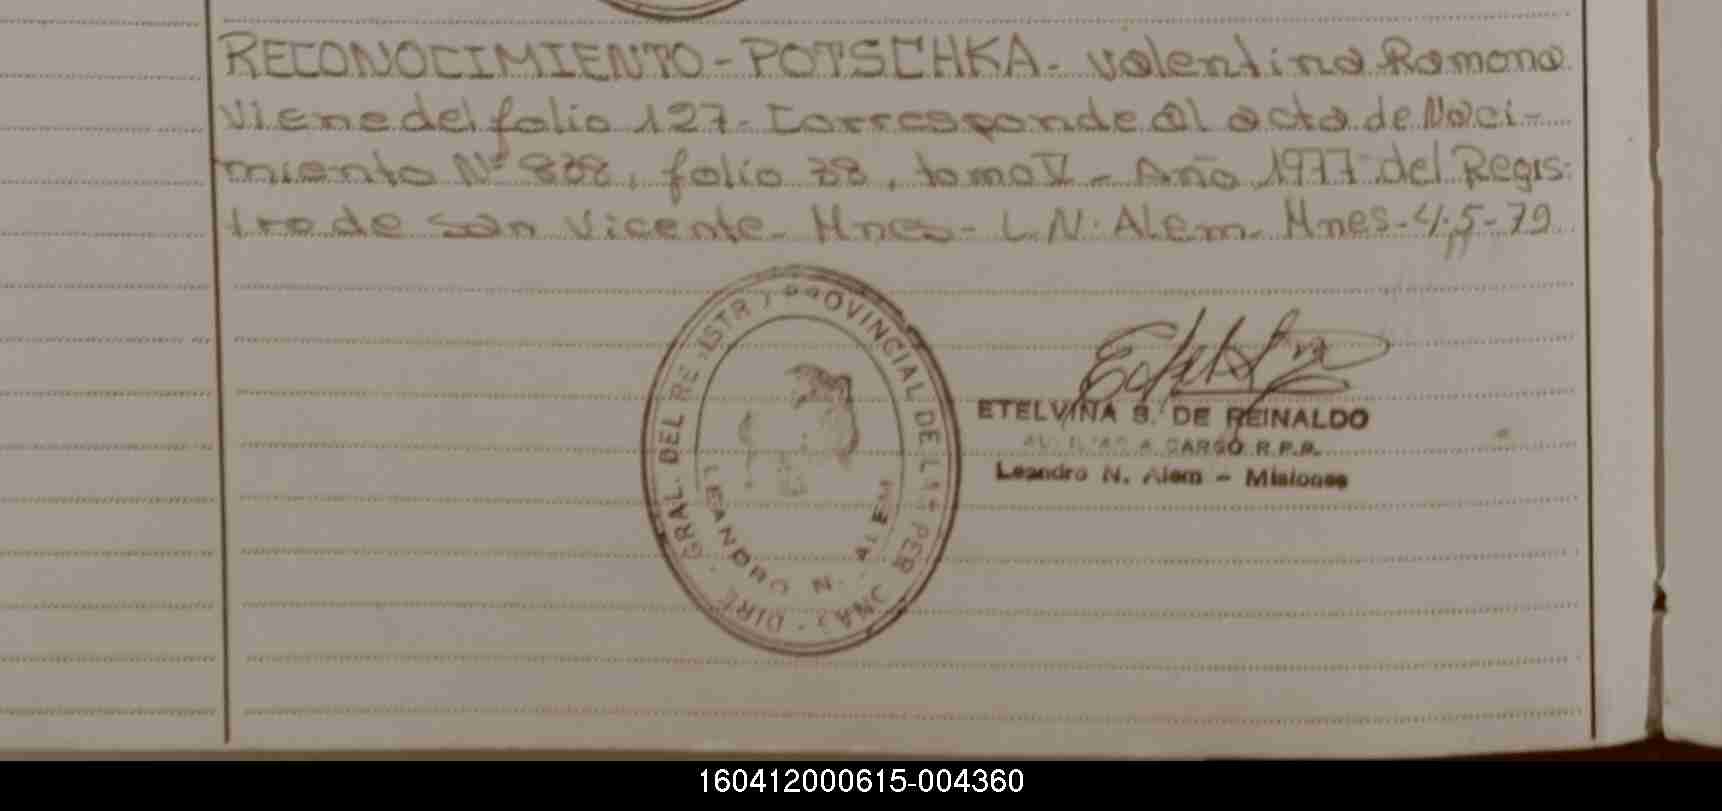 RECONOCIMIENTO - POTSCHKA - Valentina Ramona
Viene del folio 127 - Corresponde al acta de Naci-
miento Nº 838, folio 38, tomo V - Año 1977 del Regis-
tro de San Vicente - Mnes - L.N. Alem - Mnes - 4-5-79
GRAL. DEL REGISTR PROVINCIAL DE LAS PER
LEANDRO N. ALEM
ETELVINA S. DE REINALDO
A CARGO R.P.P.
Leandro N. Alem - Misiones
160412000615-004360